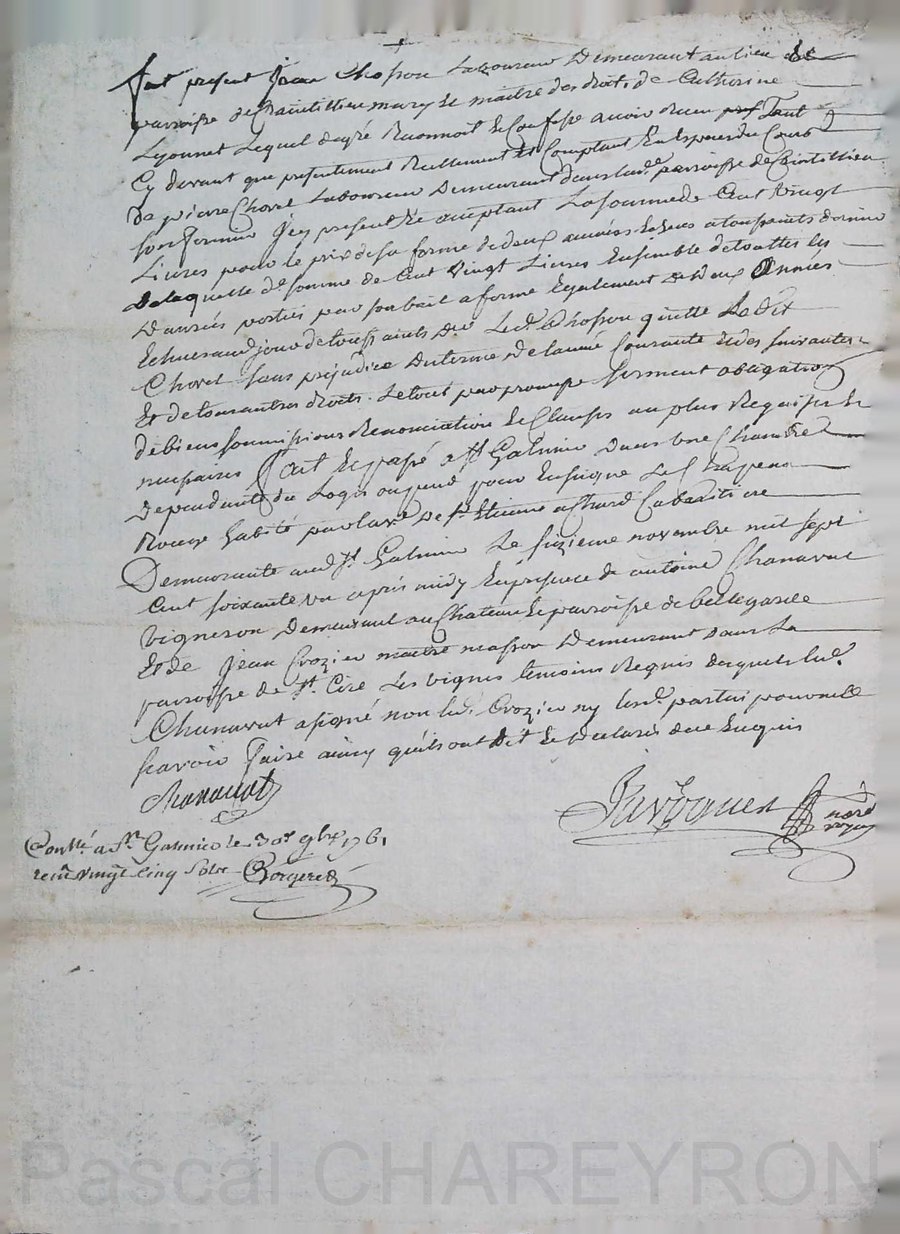 fut présent Jean Chosson Laboureur Demeurant au lieu de
parroisse de Chaintillieu mary Et maitre des droits de Catherine
Lyonnet Lequel de gré Reconnoit Et Confesse avoir Receu Tant
Cy devant que presentement Reellement Et Comptant En Espece du Cours
De pierre Chovet Laboureur Demeurant dans lad.e parroisse de Chintillieu
son Fermier Icy present Et acceptant La somme de Cent vingt
Livres pour le prix de sa ferme de deux années Echues a toussaints dernier
De laquelle de somme de Cent vingt Livres Ensemble de touttes les
Danrées portées par son bail a ferme Egalement de deux Années
Echues aud jour de toussaints Led. Chosson quitte Ledit
Chovet Sans prejudice du terme De lannée Courante Et des suivantes
Et de tous autres droits. Le tout par promesse serment obligation
de biens soumissions Renonciation Et Clauses au plus Requises Et
necessaires Fait Et passé a St Galmier Dans une Chambre
Dependante du Logis ou pend pour Enseigne Le Chapeau
Rouge habité par la ve De Sr Etienne achard Cabaretiere
Demeurante aud St. Galmier Le seizieme novembre mil sept
Cent soixante un après midy En presence de antoine Chanavat
vigneron Demeurant au Chatelus parroisse de bellegarde
Et de Jean Crozier maitre masson Demeurant dans La
parroisse de St. Cire Les vignes temoins Requis desquels led.
Chanavat a signé non led. Crozier ny lesd. parties pour ne le
scavoir faire ainsy qu'ils ont Dit Et Declaré de ce Enquis
Chanavat
nore
royal
Contllé a St. Galmier le 30e 9bre 1761
recu vingt cinq sols
Pascal CHAREYRON